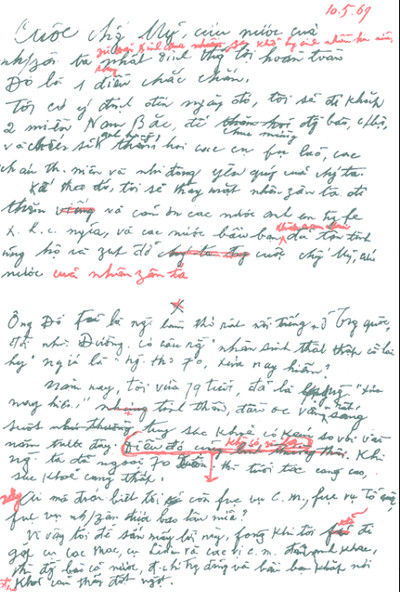 10.5.69
Cuộc chốg Mỹ, cứu nước của
zù fải kinh qua nhiều gian khổ hy sinh nhiều hơn nữa,
song
nh/zân ta nhất định thắg lợi hoàn toàn
Đó là 1 điều chắc chắn.
Tôi có ý định đến ngày đó, tôi sẽ đi khắp
2 miền Nam Bắc, để chúc mừng đg bào, c/bộ,
và chiến sĩ anh hùng, thăm hỏi các cụ fụ lão, các
cháu th. niên và nhi đồng yêu quý của chg ta.
Kế theo đó, tôi sẽ thay mặt nhân zân ta đi
thăm và cám ơn các nước anh em trg fe
x. h. c. nghĩa, và các nước bầu bạn đã tận tình
ủng hộ và zúp đỡ cuộc chốg Mỹ, cứu
nước của nhân zân ta
Ông Đỗ Fủ là ng làm thơ rất nổi tiếng ở Trg quốc,
đời nhà Đường, có câu rằg "nhân sinh thất thập cổ lai
hy" nghĩa là "ng thọ 70, xưa nay hiếm".
Năm nay, tôi vừa 79 tuổi, đã là "xưa
nay hiếm" tinh thần, đầu óc vẫn rất sáng
suốt tuy sức khoẻ có kém so với vài
năm trước đây. Điều đó cũng không có gì lạ. Khi
ng ta đã ngoài 70 xuân, thì tuổi tác càng cao,
sức khoẻ càng thấp.
Ai mà đoán biết tôi còn fục vụ C.M., fục vụ Tổ quốc,
fục vụ nh/zân được bao lâu nữa?
Vì vậy tôi để sẵn mấy lời này, fòng khi tôi sẽ đi
gặp cụ Các Mác, cụ Lênin và các vị c.m. đàn anh khác,
thì đg bào cả nước, đ.chí trg đảng và bầu bạn khắp nơi
đều khỏi cảm thấy đột ngột.